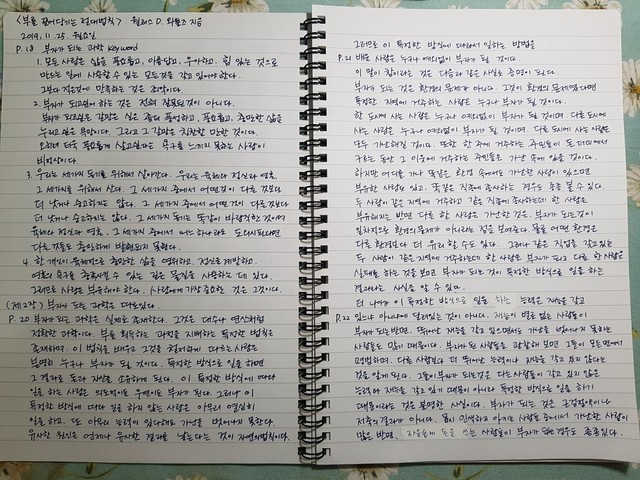 <부를 끌어당기는 절대법칙> 월러스 D. 와틀즈 지음
2019. 11. 25. 월요일
P.18 부자가 되는 과학 Keyword
1. 모든 사람은 삶을 풍요롭고, 아름답고, 우아하고, 힘 있는 것으로
만드는 일에 사용할 수 있는 모든것을 갖고 있어야 한다.
그보다 적은것에 만족하는 것은 죄악이다.
2. 부자가 되고싶어 하는 것은 전혀 잘못된것이 아니다.
부자가 되고싶은 갈망은 실은 좀더 풍성하고, 풍요롭고, 충만한 삶을
누리고 싶은 욕망이다. 그리고 그 갈망은 칭찬할 만한 것이다.
오히려 더욱 풍요롭게 살고싶다는 욕구를 느끼지 못하는 사람이
비정상이다.
3. 우리는 세가지 동기를 위해서 살아간다. 우리는 육체와 정신과 영혼,
그 세가지를 위해서 산다. 그 세가지 중에서 어떤것이 다른 것보다
더 낫거나 숭고하지는 않다. 그 세가지 중에서 어떤 것이 다른것보다
더 낫거나 숭고하지는 않다. 그 세가지 모두는 똑같이 바람직한것이며
육체와 정신과 영혼. 그 세가지 중에서 어느 하나라도 도외시된다면
다른 것들도 충만하게 발현되지 못한다.
4. 한 개인이 육체적으로 충만한 삶을 영위하고, 정신을 계발하고,
영혼의 욕구를 충족시킬 수 있는 길은 물질을 사용하는 데 있다.
그러므로 사람은 부유해야 한다. 사람에게 가장 중요한 것은 그것이다.
(제2장) 부자가 되는 과학은 따로있다.
P.20 부자가 되는 과학은 실제로 존재한다. 그것은 대수나 연산처럼
정확한 과학이다. 부를 획득하는 과정을 지배하는 특정한 법칙은
존재하며, 이 법칙을 배우고 그것을 철저하게 따르는 사람은
분명히 누구나 부자가 될 것이다. 특정한 방식으로 일을 하면
그 결과로 돈과 재산을 소유하게 된다. 이 특정한 방식에 따라
일을 하는 사람은 의도적이든 우연이든 부자가 된다. 그러나 이
특정한 방식에 따라 일을 하지 않는 사람은 아무리 열심히
일을 하고, 또 아무리 능력이 있더라도 가난을 벗어나지 못한다.
유사한 원인은 언제나 유사한 결과를 낳는다는 것이 자연의법칙이다.
그러므로 이 특정한 방식에 따라서 일하는 방법을
P.21 배운 사람은 누구나 예외없이 부자가 될 것이다.
이 말이 참이라는 것은 다음과 같은 사실로 증명이 된다.
부자가 되는 것은 환경의 문제가 아니다. 그것이 환경의 문제였다면
특정한 지역에 거주하는 사람은 누구나 부자가 될 것이다.
한 도시에 사는 사람은 누구나 예외없이 부자가 될 것이며 다른 도시에
사는 사람은 누구나 예외없이 부자가 될 것이며 다른 도시에 사는 사람은
모두 가난해질 것이다. 또한 한 주에 거주하는 주민들이 돈 더미에서
구르는 동안 그 이웃에 거주하는 주민들은 가난 속에 있을 것이다.
하지만 어디를 가나 똑같은 환경 속에서도 가난한 사람이 있으면
부유한 사람도 있고, 똑같은 직종에 종사하는 경우도 흔히 볼 수 있다.
두 사람이 같은 지역에 거주하고 같은 직종에 종사하는데 한 사람은
부유해지는 반면 다른 한 사람은 가난한 것은, 부자가 되는것이
일차적으로 환경의 문제가 아니라는 점을 보여준다. 물론 어떤 환경은
다른 환경보다 더 유리할 수도 있다. 그러나 같은 직업을 갖고 있는
두 사람이 같은 지역에 거주하는데 한 사람은 부자가 되고 다른 한 사람은
실패하는 것을 보면 부자가 되는 것이 특정한 방식으로 일을 하는
결과라는 사실을 알 수 있다.
더 나아가 이 특정한 방식으로 일을 하는 능력은 재능을 갖고
P.22 있느냐 아니냐에 달려있는 것이 아니다. 재능이 별로 없는 사람들이
부자가 되는 반면, 뛰어난 재능을 갖고 있으면서도 가난을 벗어나지 못하는
사람들도 많기 때문이다. 부자가 된 사람들을 관찰해 보면 그들이 모든면에서
평범하며, 다른 사람들보다 더 뛰어난 능력이나 재능을 갖고 있지 않다는
것을 알게 된다. 그들이 부자가 된것은 다른 사람들이 갖고 있지 않은
능력과 재능을 갖고 있기 때문이 아니라 특정한 방식으로 일을 하기
때문이라는 것은 분명한 사실이다. 부자가 되는 것은 근검절약이나
저축의 결과가 아니다. 몹시 인색하고 아끼는 사람들 중에서 가난한 사람이
많은 반면, 자유롭게 돈을 쓰는 사람들이 부자가 되는경우도 종종있다.